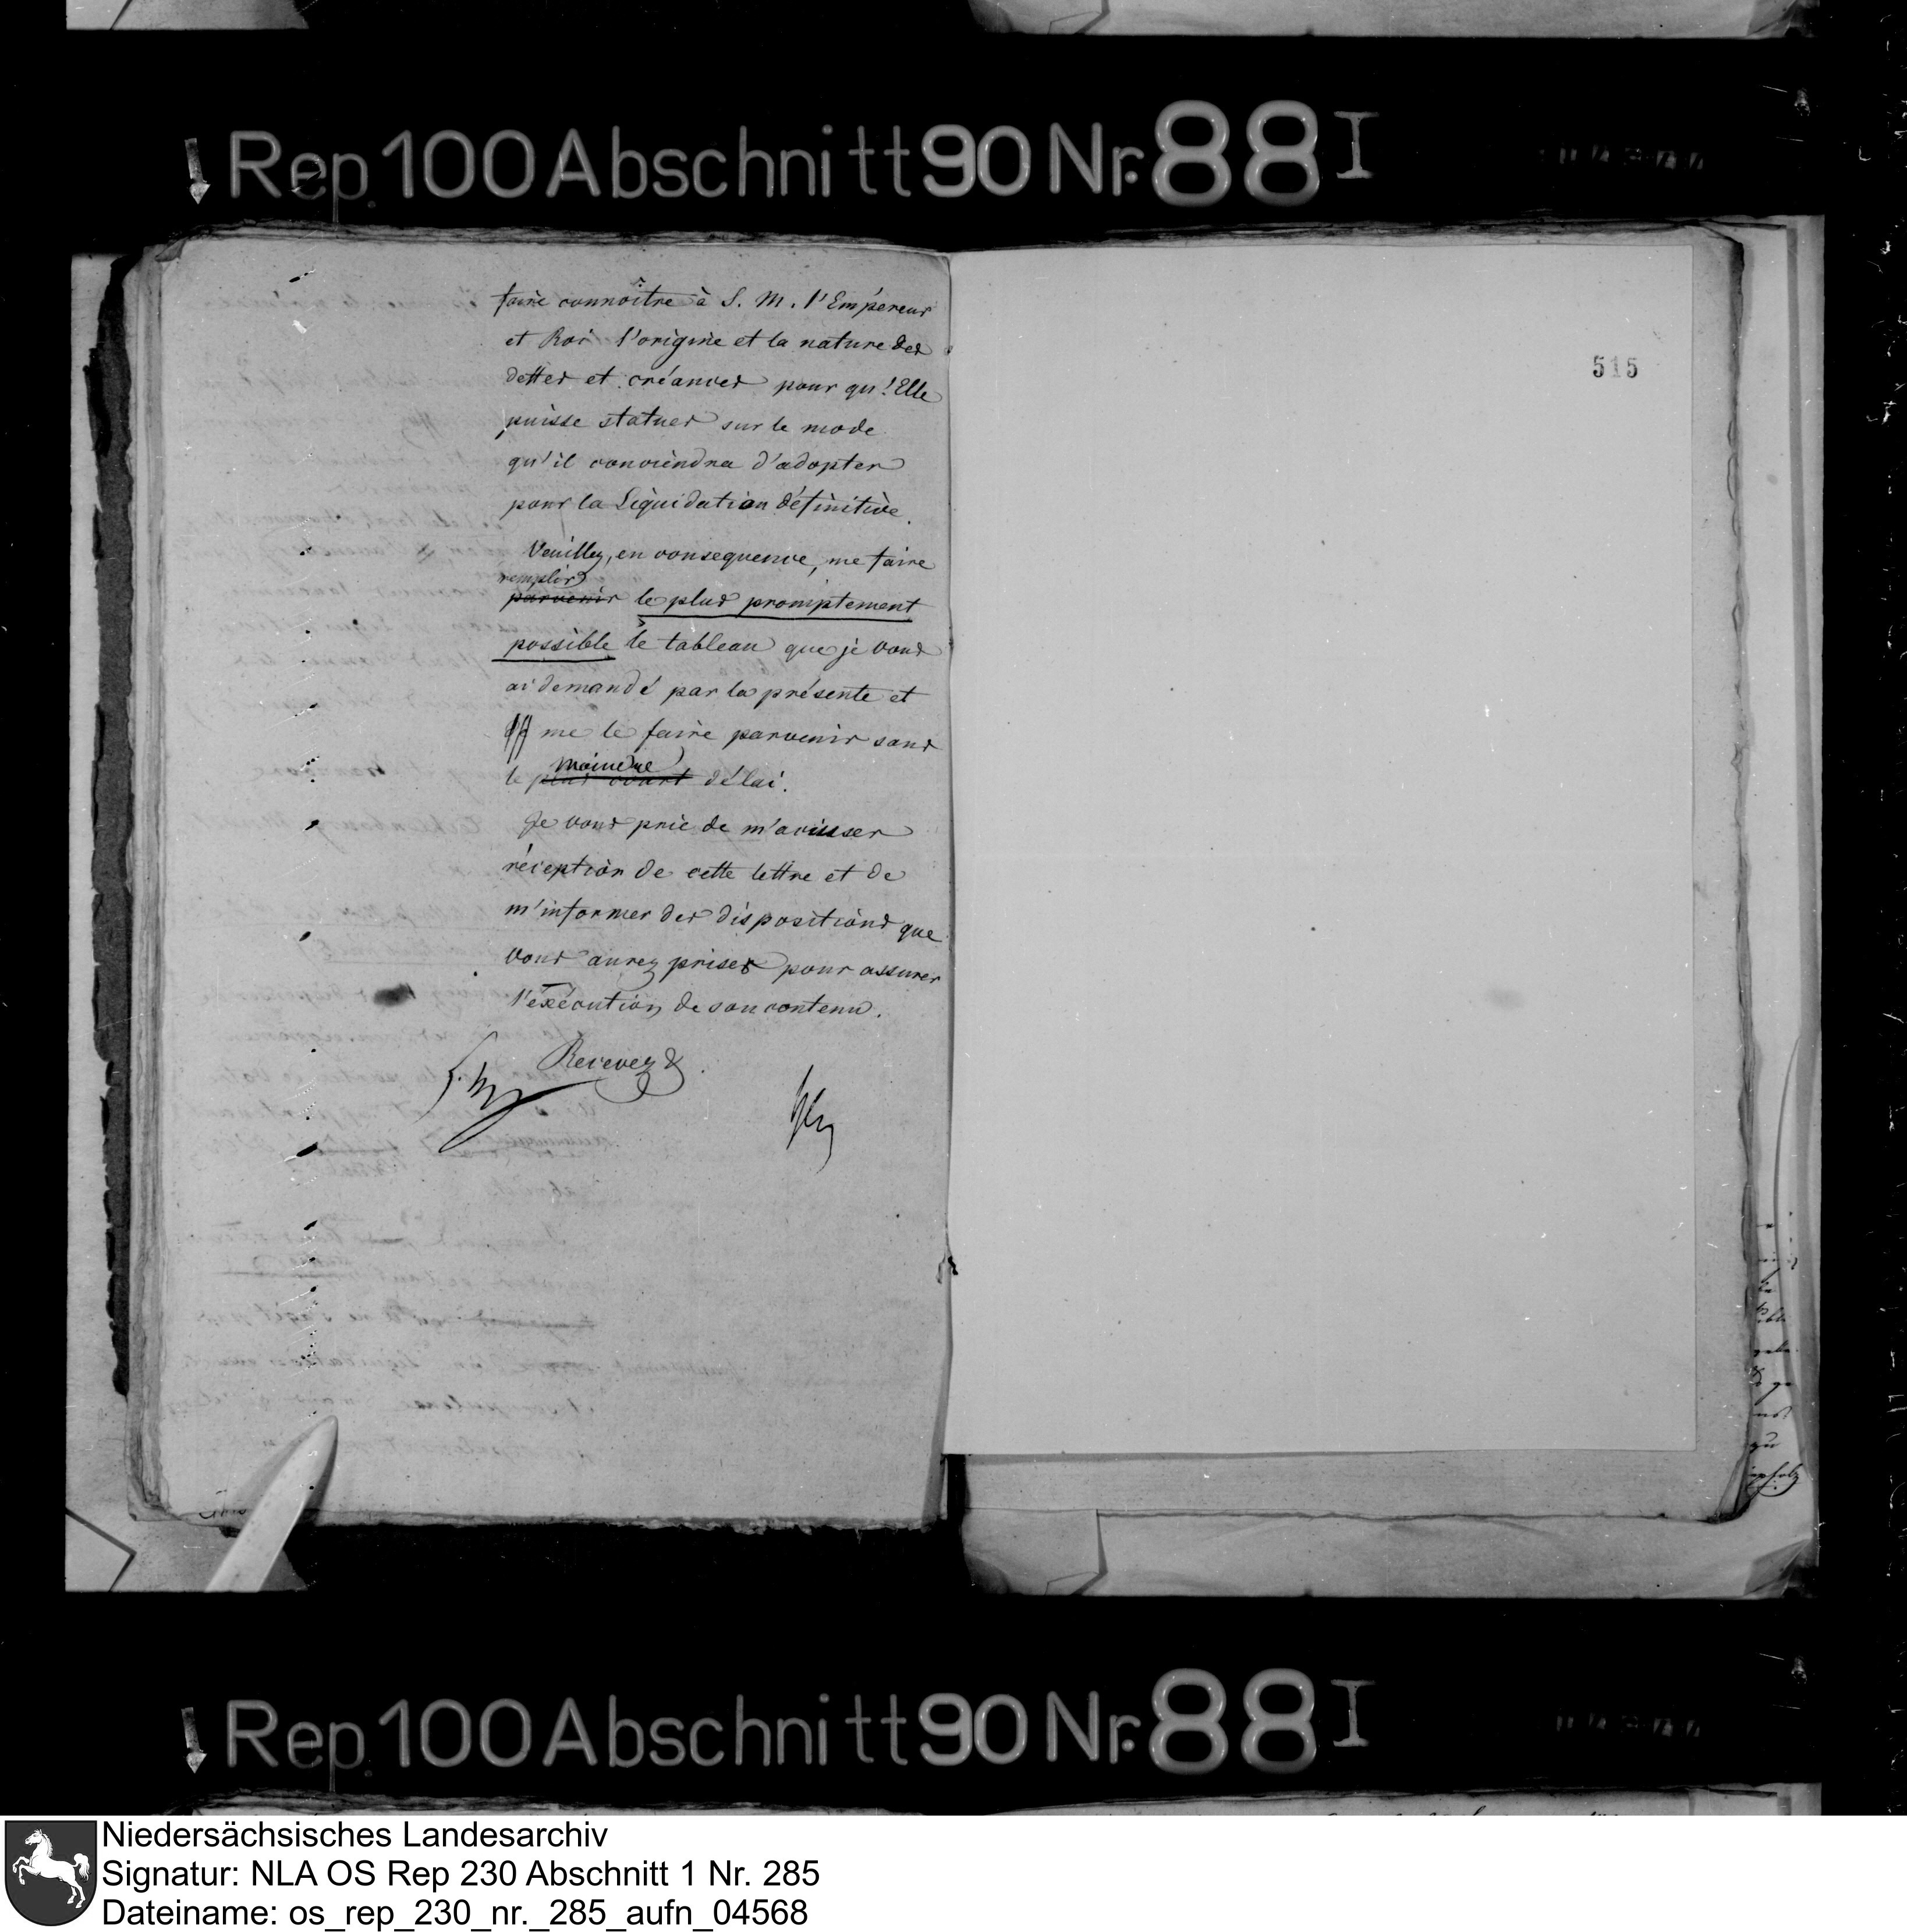 Rep. 100 Abschnitt 90 Nr. 88 I
faire connoître à S. M. l'Empéreur
et Roi l'origine et la nature des
dettes et créances pour qu'Elle
puisse statuer sur le mode
qu'il conviendra d'adopter
pour la Liquidation définitive.
Veuillez, en consequence, me faire
remplir
parvenir le plus promptement
possible le tableau que je vous
ai demandé par la présente et
me le faire parvenir sans
moindre
le plus court délai.
Je vous prie de m'accuser
réception de cette lettre et de
m'informer des dispositions que
vous aurez prises pour assurer
l'exécution de son contenu.
Recevez &.
515
Rep. 100 Abschnitt 90 Nr. 88 I
Niedersächsisches Landesarchiv
Signatur: NLA OS Rep 230 Abschnitt 1 Nr. 285
Dateiname: os_rep_230_nr._285_aufn_04568